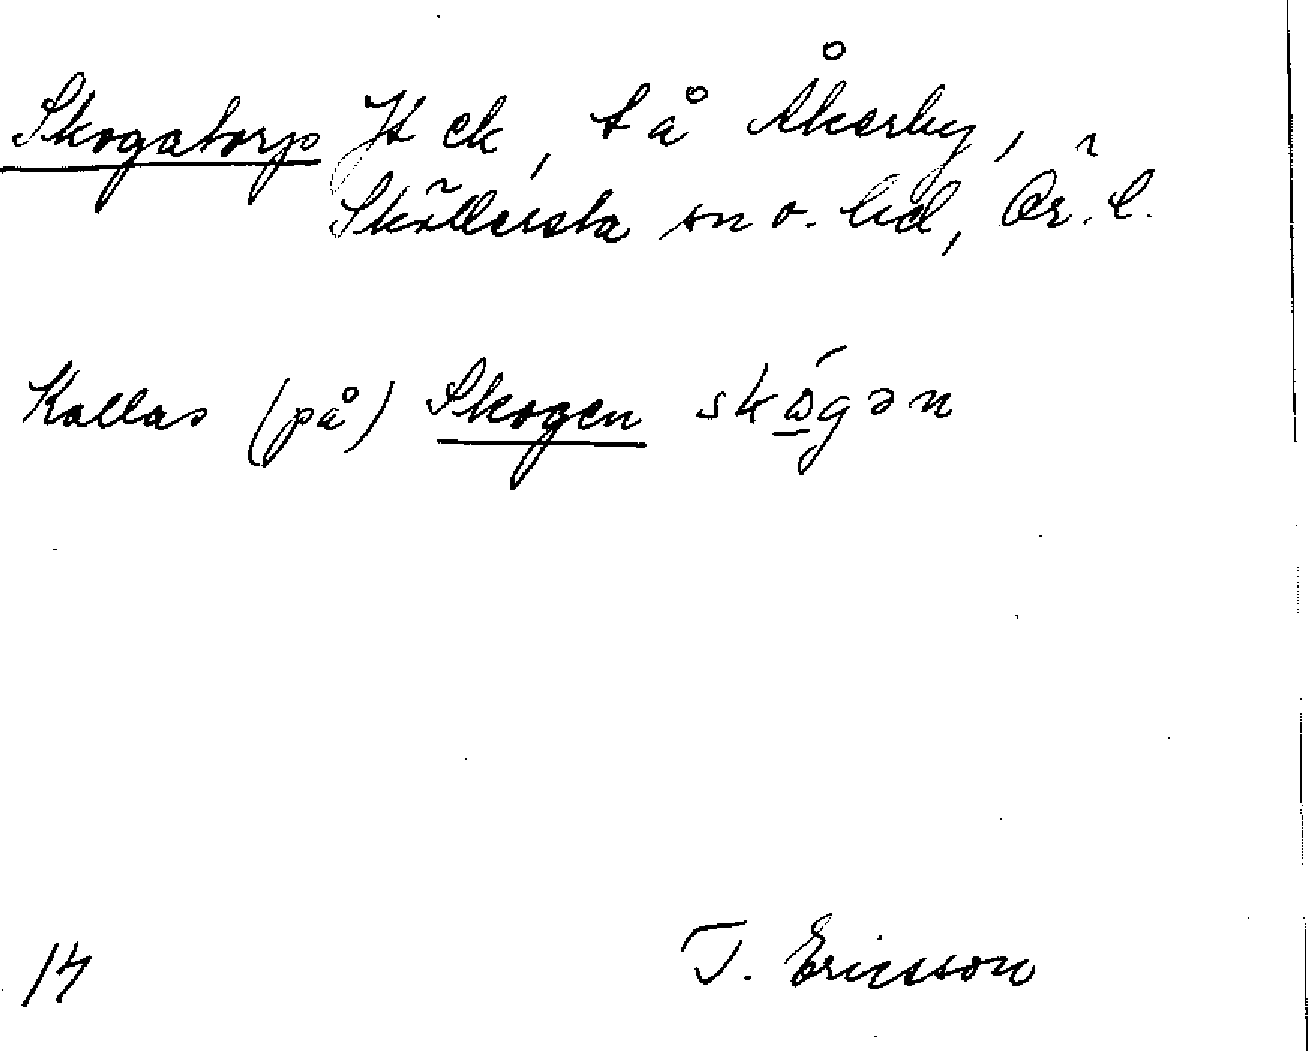 Skogatorp Jt ek, t å Åkerby,
Sköllersta sn o. hd, Ör. l.
Kallas (på) Skogen skógən
T. Ericsson